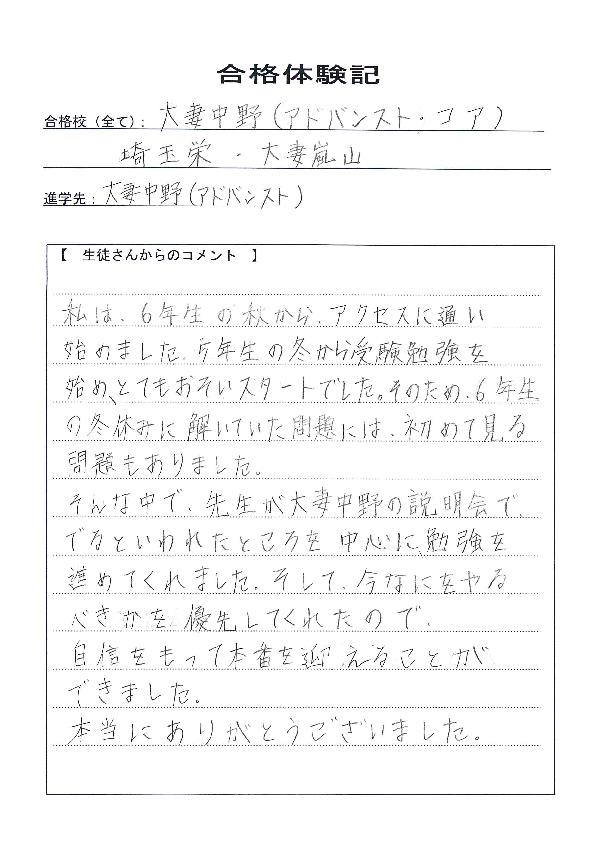 合格体験記
合格校（全て）：大妻中野（アドバンスト・コア）
埼玉栄・大妻嵐山
進学先：大妻中野（アドバンスト）
【　生徒さんからのコメント　】
私は、6年生の秋から、アクセスに通い
始めました。5年生の冬から受験勉強を
始め、とてもおそいスタートでした。そのため、6年生
の冬休みに解いていた問題には、初めて見る
問題もありました。
そんな中で、先生が大妻中野の説明会で、
でるといわれたところを中心に、勉強を
進めてくれました。そして、今なにをやる
べきかを優先してくれたので、
自信をもって本番を迎えることが
できました。
本当にありがとうございました。